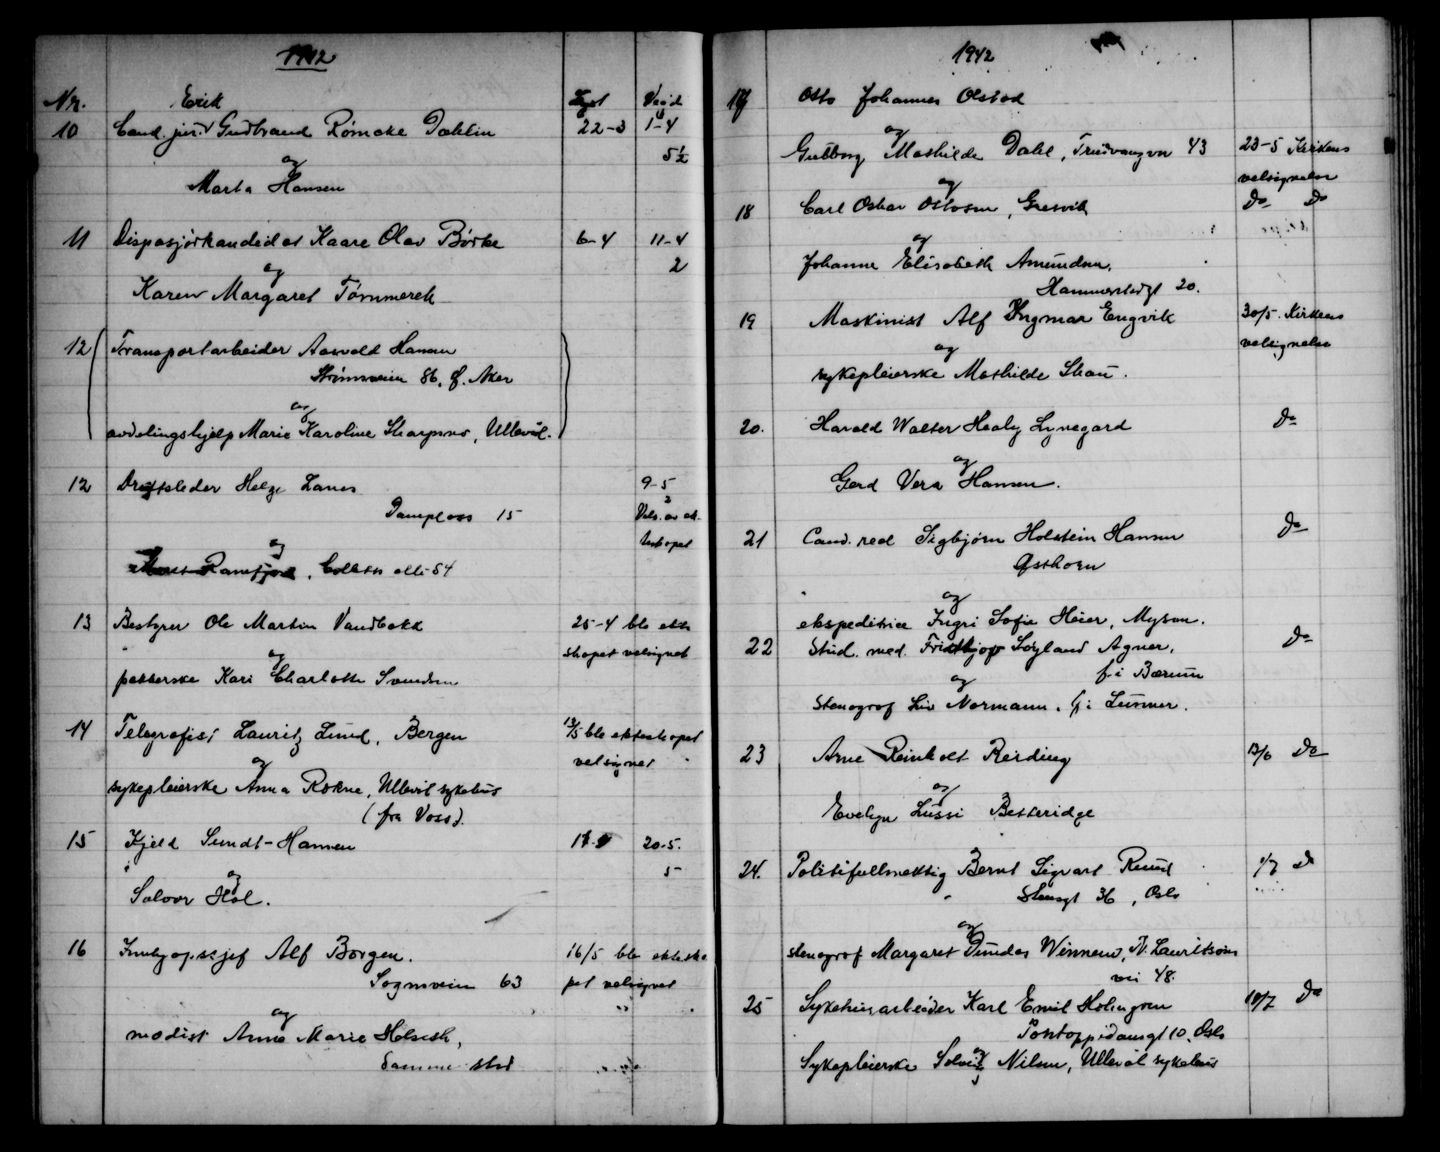 1942
Nr. Lyst Viød
Erik
10 Cand. jur. Gudbrand Rømcke Dahlin 22-3 1-4
5½
og
Marta Hansen
11 Disposjørkandidat Kaare Olav Børke 6-4 11-4
2
og
Karen Margaret Tømmerek
12 Transportarbeider Aasvald Hansen
Strømsveien 86, Ø. Aker
og
avdelingshjelp Marie Karoline Skarpnes, Ullevål.
12 Driftsleder Helge Lanes 9-5
2
Damplass 15 Vels. av ek-
teskapet
og
Ramfjord, Colletts allé 54
13 Bestyrer Ole Martin Vandbakk 25-4 ble ekte
skapet velsignet
og
pelterske Kari Charlotte Svendsen
14 Telegrafist Lauritz Lund, Bergen 13/5 ble ekteskapet
velsignet
og
sykepleierske Anna Rokne, Ullevål sykehus
(fra Voss).
15 Kjeld Sundt-Hansen 20-5.
5
og
Solvor Hol.
16 Innkjøpssjef Alf Borgen. 16/5 ble ekteska
Sognsveien 63 pet velsignet
og
modist Anna Marie Holseth,
Samme sted
1942
17 Otto Johannes Olstad
og
Gulborg Mathilde Dahl, Trudvangvn 43 23-5 Kirkens
velsignelse
18 Carl Oskar Ottosen, Gresvik Do Do
og
Johanne Elisabeth Amundsen,
Hammerstadgt 20.
19 Maskinist Alf Yngmar Engvik 30/5. Kirkens
velsignelse
og
sykepleierske Mathilde Skau.
20. Harald Walter Healy Lynegard Do
og
Gerd Vera Hansen.
21 Cand. real Sigbjørn Holstein Hansen Do
Østhorn
og
ekspeditrice Ingri Sofie Heier, Mysen.
22 Stud. med. Fridtjof Søyland Agner, Do
f. i Bærum
og
stenograf Liv Normann. f. i Lunner.
23 Arne Reinholt Reiding 13/6 Do
og
Evelyn Lussi Betteridge
24. Politifullmektig Bernt Sigvart Ruud 1/7 Do
Stensgt 36, Oslo
og
stenograf Margaret Dundas Winnem, N. Lauritsøns
vei 48.
25 Sykehusarbeider Karl Emil Holmgren 18/7 Do
Pontoppidansgt 10, Oslo
og
Sykepleierske Solveig Nilsen, Ullevål sykehus